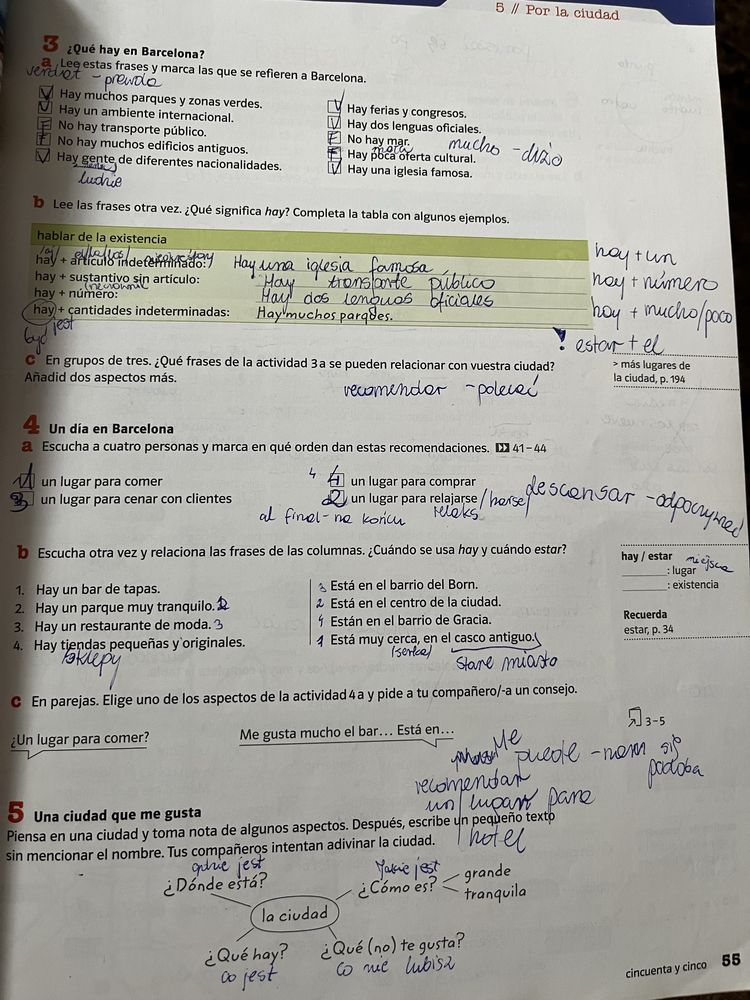 5 // Por la ciudad
3 ¿Qué hay en Barcelona?
a Lee estas frases y marca las que se refieren a Barcelona.
verdad - prawda
V Hay muchos parques y zonas verdes.
V Hay un ambiente internacional.
F No hay transporte público.
F No hay muchos edificios antiguos.
V Hay gente de diferentes nacionalidades.
ludzie
V Hay ferias y congresos.
V Hay dos lenguas oficiales.
F No hay mar.
mucho - dużo
F Hay poca oferta cultural.
V Hay una iglesia famosa.
b Lee las frases otra vez. ¿Qué significa hay? Completa la tabla con algunos ejemplos.
hablar de la existencia
hay + artículo indeterminado: Hay una iglesia famosa
hay + sustantivo sin artículo: Hay transporte público
hay + número: Hay dos lenguas oficiales
hay + cantidades indeterminadas: Hay muchos parques.
być jest
hay + un
hay + número
hay + mucho/poco
! estar + el
c En grupos de tres. ¿Qué frases de la actividad 3 a se pueden relacionar con vuestra ciudad?
Añadid dos aspectos más.
recomendar - polecać
> más lugares de
la ciudad, p. 194
4 Un día en Barcelona
a Escucha a cuatro personas y marca en qué orden dan estas recomendaciones. 41–44
1 un lugar para comer
3 un lugar para cenar con clientes
4 4 un lugar para comprar
2 un lugar para relajarse
descansar - odpoczywać
al final - na końcu
relaks
b Escucha otra vez y relaciona las frases de las columnas. ¿Cuándo se usa hay y cuándo estar?
1. Hay un bar de tapas.
2. Hay un parque muy tranquilo. 2
3. Hay un restaurante de moda. 3
4. Hay tiendas pequeñas y originales.
sklepy
3 Está en el barrio del Born.
2 Está en el centro de la ciudad.
4 Están en el barrio de Gracia.
1 Está muy cerca, en el casco antiguo.
stare miasto
hay / estar
miejsce
______: lugar
______: existencia
Recuerda
estar, p. 34
c En parejas. Elige uno de los aspectos de la actividad 4 a y pide a tu compañero/-a un consejo.
¿Un lugar para comer?
Me gusta mucho el bar… Está en…
3–5
Me
puede - nam się
podoba
recomendar
un lugar para
hotel
5 Una ciudad que me gusta
Piensa en una ciudad y toma nota de algunos aspectos. Después, escribe un pequeño texto
sin mencionar el nombre. Tus compañeros intentan adivinar la ciudad.
gdzie jest
¿Dónde está?
Jakie jest
¿Cómo es?
grande
tranquila
la ciudad
¿Qué hay?
co jest
¿Qué (no) te gusta?
co nie lubisz
cincuenta y cinco 55